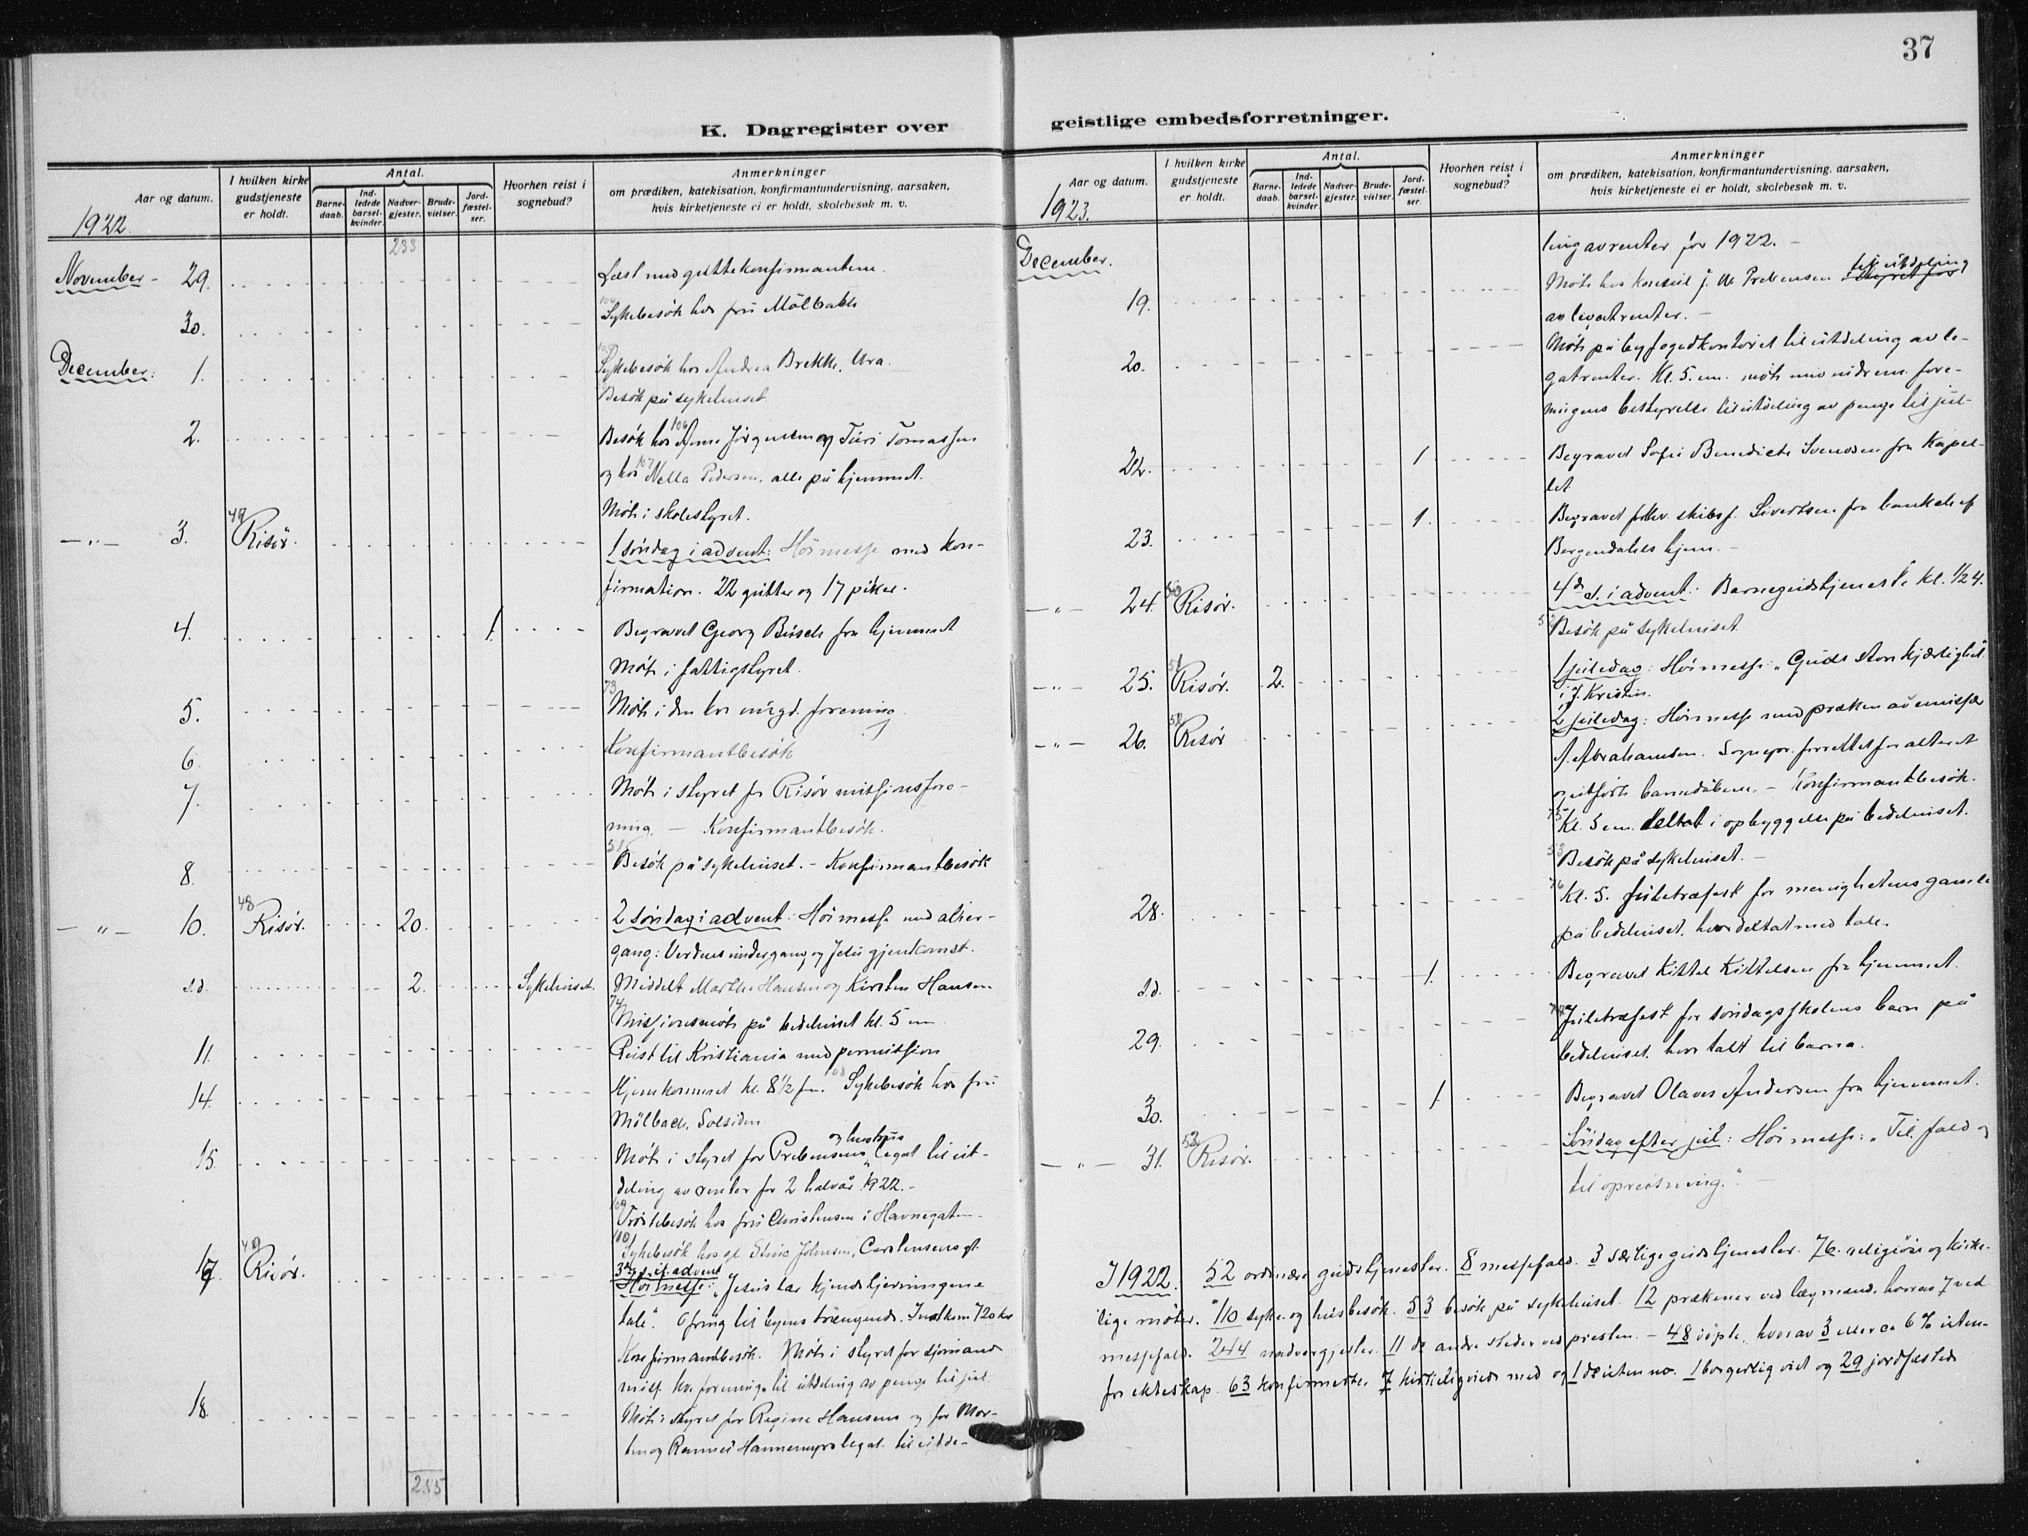 37
K. Dagregister over
geistlige embedsforretninger.
Aar og datum.
1922
I hvilken kirke gudstjeneste er holdt.
Antal.
Barne-daab.
Ind-ledede barsel-kvinder.
Nadver-gjester.
Brude-vielser.
Jord-fæstel-ser.
Hvorhen reist i sognebud?
Anmerkninger
om prædiken, katekisation, konfirmantundervisning, aarsaken,
hvis kirketjeneste ei er holdt, skolebesøk m. v.
233
November - 29. Læst med guttekonfirmantene.
30. Sykebesök hos fru Mölbach
December: 1. Sykebesök hos Andrea Brekke, Ura.
Besök på sykehuset
2. Besök hos 106 Anne Jörgensen og Turi Tomassen
og hos 107 Nella Pedersen, alle på hjemmet.
Möte i skolestyret.
-"- 3. 47 Risör. 1 söndag i advent: Höimesse med kon-
firmation. 22 gutter og 17 piker.
4. 1. Begravet Georg Busch fra hjemmet
Möte i fattigstyret.
73
5. Möte i den kr. ungd. forening.
6. Konfirmantbesök
7. Möte i styret for Risör missionsfore-
ning. - Konfirmantbesök.
8. Besök på sykehuset. - Konfirmantbesök
-"- 10. 48 Risör. 20. 2 söndag i advent: Höimesse med alter-
gang: Verdens undergang og Jesu gjenkomst.
s.d. 2. Sykehuset. Meddelt Marthe Hansen og Kirsten Hansen
74 Missionsmöte på bedehuset kl. 5 em
11. Reist til Kristiania med permission
14. Hjemkommet kl. 8 1/2 fm. 108 Sykebesök hos fru
Mölbach, Solsiden.
15. Möte i styret for Prebensens og hustrus legat til ut-
deling av renter for 2 halvår 1922. -
109 Tröstebesök hos fru Christensen i Havnegaten.
110 Sykebesök hos gl. Johnsen, Carstensens gt.
3die s. i advent
17. 49 Risör. Höimesse: "Jesus lar kjendsgjerningene
tale". Ofring til byens trængende. Indkom 720 kr
Konfirmantbesök. Möte i styret for sjömands
miss. kv. forening til utdeling av penge til jul
18. Möte i styret for Regine Hansens og for Mor-
ten og Hannemyrs legat til utde-
255
Aar og datum.
1923.
I hvilken kirke gudstjeneste er holdt.
Antal.
Barne-daab.
Ind-ledede barsel-kvinder.
Nadver-gjester.
Brude-vielser.
Jord-fæstel-ser.
Hvorhen reist i sognebud?
Anmerkninger
om prædiken, katekisation, konfirmantundervisning, aarsaken,
hvis kirketjeneste ei er holdt, skolebesøk m. v.
December. ling av renter for 1922. -
19. Möte hos konsul J. W. Prebensen til utdeling
av legatrenter. -
20. Möte på byfogedkontoret til utdeling av le-
gatrenter. Kl. 5. em. möte fore-
ningens bestyrelse til utdeling av penge til jul -
22. 1 Begravet Sofie Benedicte Svendsen fra Kapel-
let
23. 1. Begravet forhv. skibsf. Sivertsen fra bankchef
Bergendahls hjem. -
-"- 24. 50 Risör. 4de s. i advent: Barnegudstjeneste kl. 1/2 4.
Besök på sykehuset
-"- 25. 51 Risör. 2. 1 juledag: Höimesse: "Guds store kjærlighet
i J. Kristus.
-"- 26. 52 Risör 2 juledag: Höimesse med præken av emissær
A. Abrahamsen. Sognepr. forrettet for alteret
og utförte barnedåbene. - Konfirmantbesök.
75 Kl. 5 em. deltat i opbyggelse på bedehuset.
53 Besök på sykehuset. -
28. 76 Kl. 5. Juletræfest for menighetens gamle
på bedehuset, hvor deltat med tale.
s.d. 1. Begravet Kittel Kittelsen fra hjemmet.
29. Juletræfest for söndagsskolens barn på
bedehuset, hvor talt til barna.
30. 1 Begravet Olaves Andersen fra hjemmet.
-"- 31. 53 Risör. Söndag efter jul: Höimesse: "Til fald og
til opreisning". -
I 1922. 52 ordinære gudstjenester. 8 messefald. 3 særlige gudstjenester. 76. religiöse og kirke-
lige möter. 110 syke- og husbesök. 53 besök på sykehuset. 12 prækener ved lægmand, hvorav 7 ved
messefald. 244 nadvergjester. 11 do andre steder ved presten. - 48 döpte, hvorav 3 eller ca 6% uten-
for ekteskap. 63 konfirmerte. 7 kirkelig viede med og 1 do uten no. 1 borgerlig viet og 29 jordfæstede